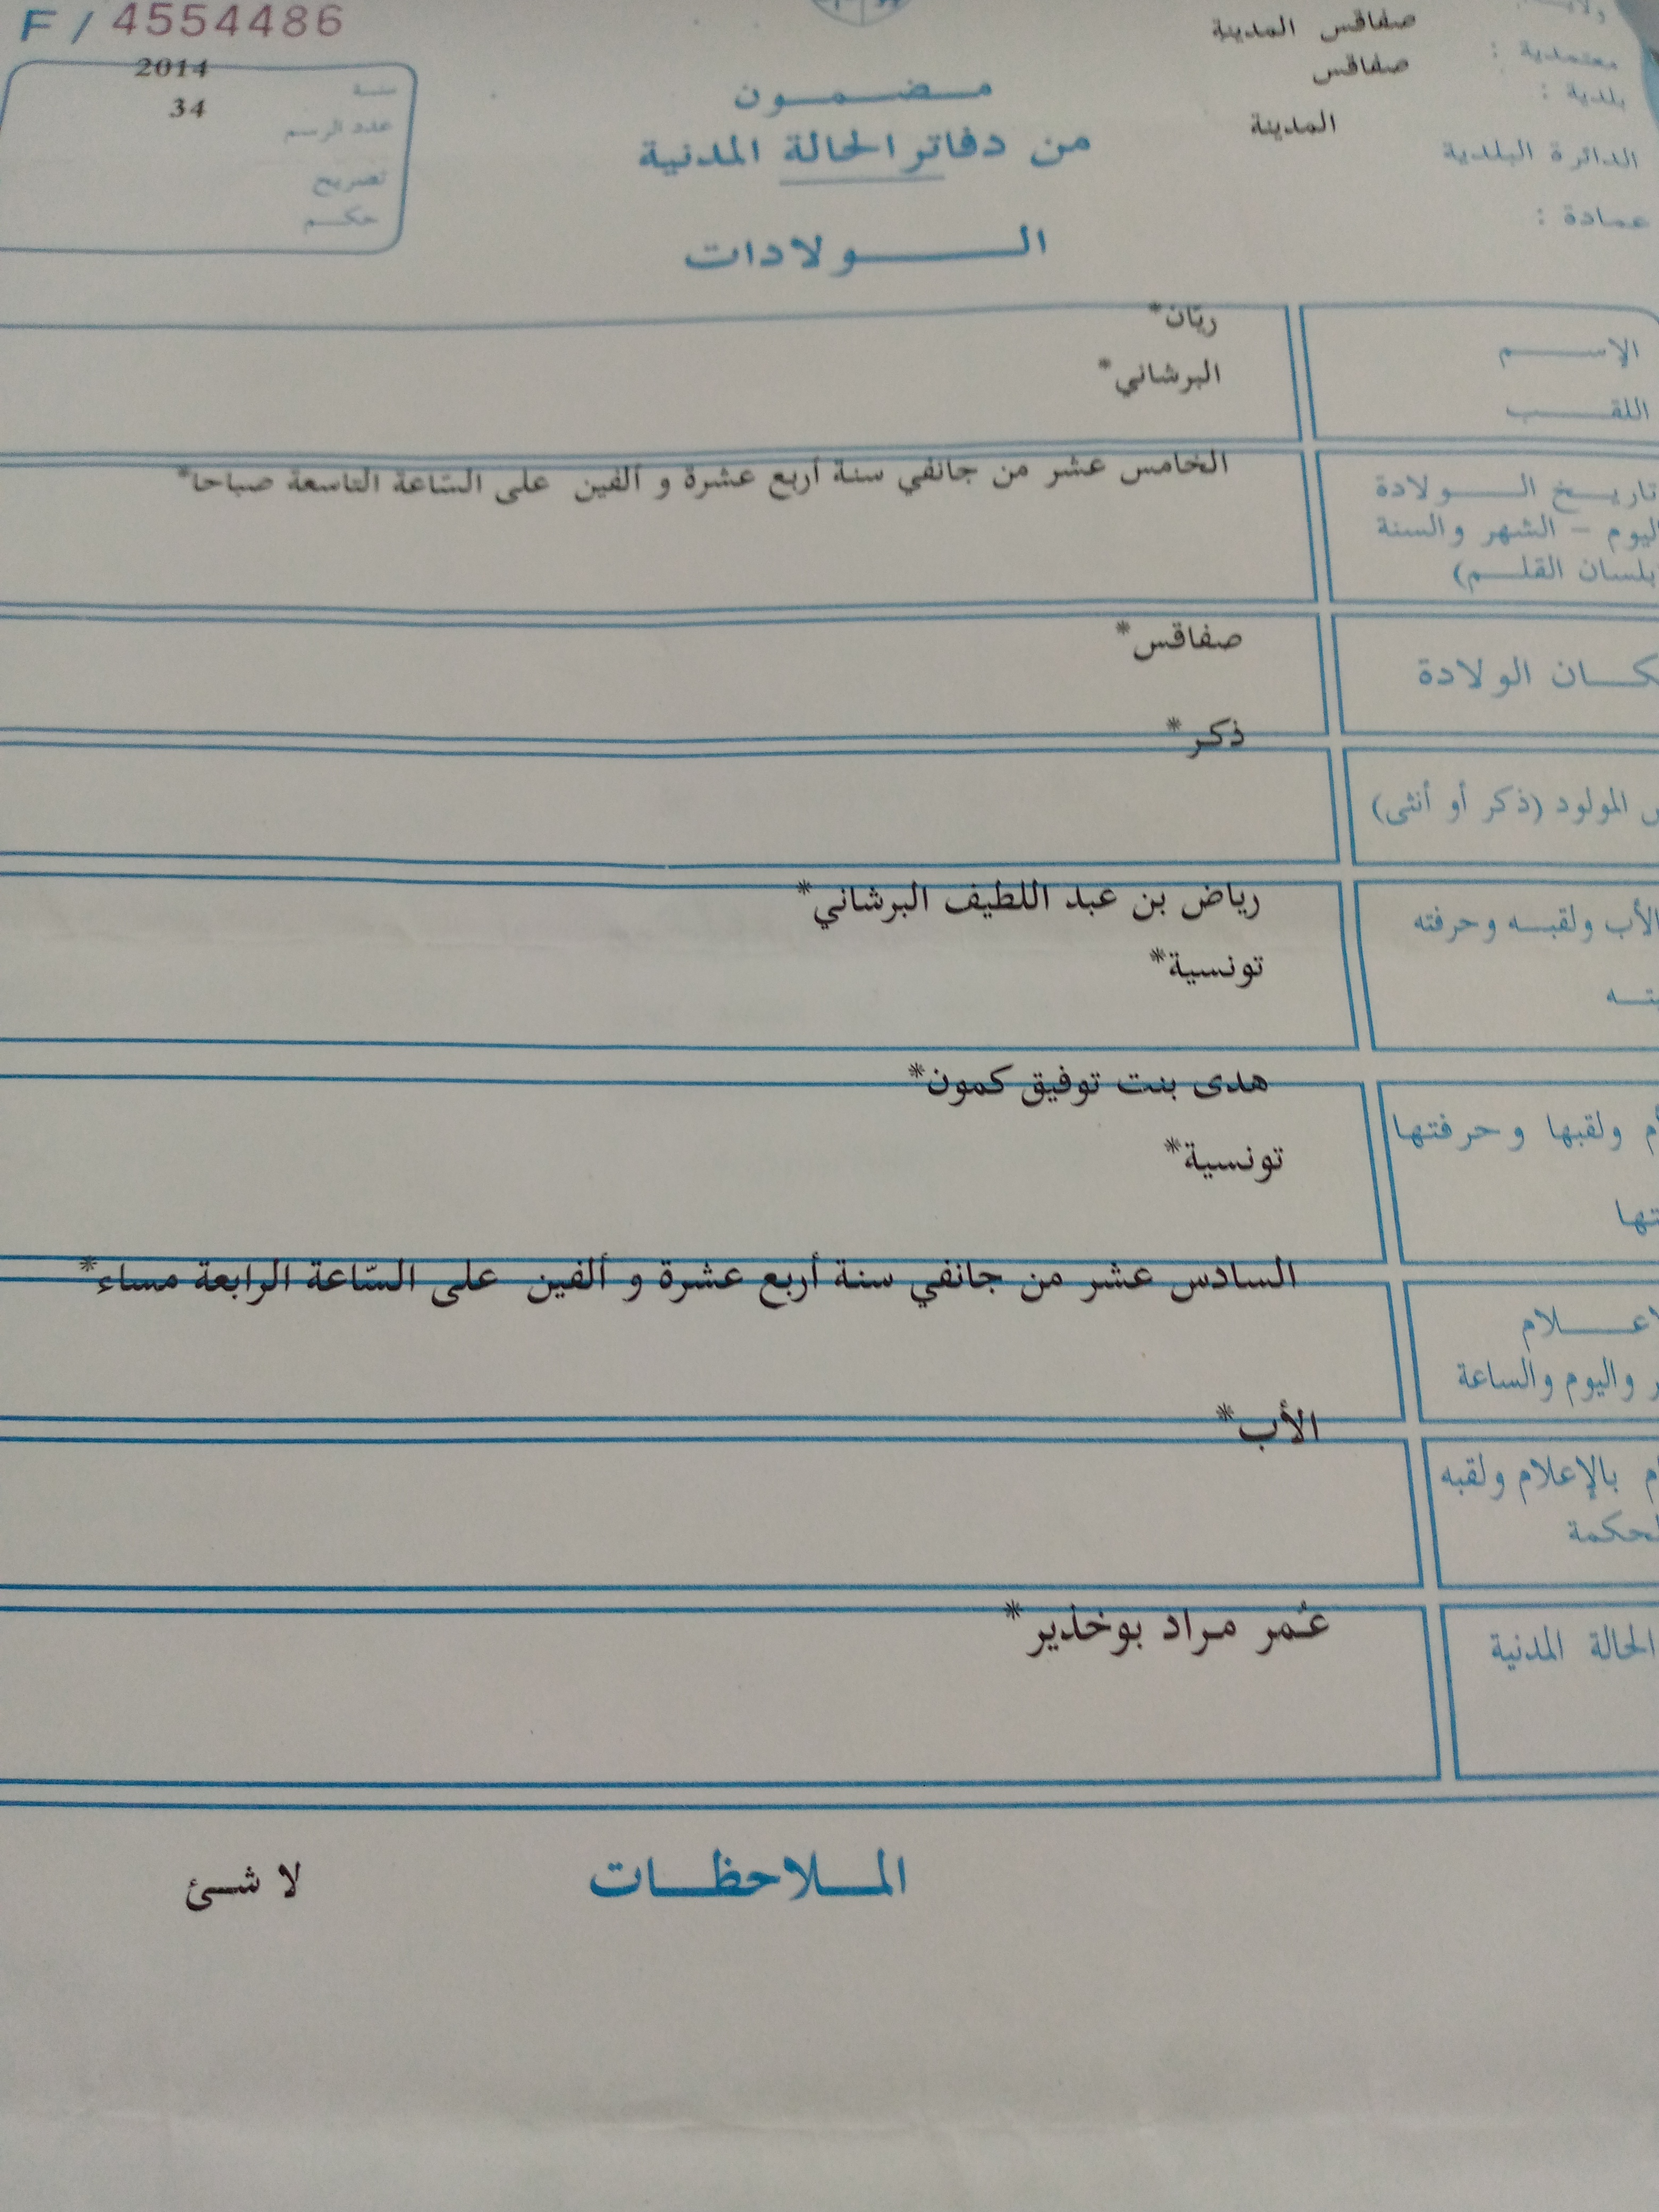 F / 4554486
صفاقس المدينة
معتمدية :
صفاقس
بلدية :
المدينة
الدائرة البلدية
عمادة :
2014
سنة
34
عدد الرسم
تصريح
حكم
مضمون
من دفاتر الحالة المدنية
الولادات
الإسم
ريّان*
اللقب
البرشاني*
تاريخ الولادة
اليوم - الشهر والسنة
بلسان القلم)
الخامس عشر من جانفي سنة أربع عشرة و ألفين على السّاعة التاسعة صباحا*
كان الولادة
صفاقس*
المولود (ذكر أو أنثى)
ذكر*
الأب ولقبه وحرفته
رياض بن عبد اللطيف البرشاني*
تونسية*
م ولقبها وحرفتها
تها
هدى بنت توفيق كمون*
تونسية*
لاعلام
ر واليوم والساعة
السادس عشر من جانفي سنة أربع عشرة و ألفين على السّاعة الرابعة مساء*
م بالإعلام ولقبه
لحكمة
الأب*
الحالة المدنية
عُمر مراد بوخذير*
الملاحظات
لا شئ